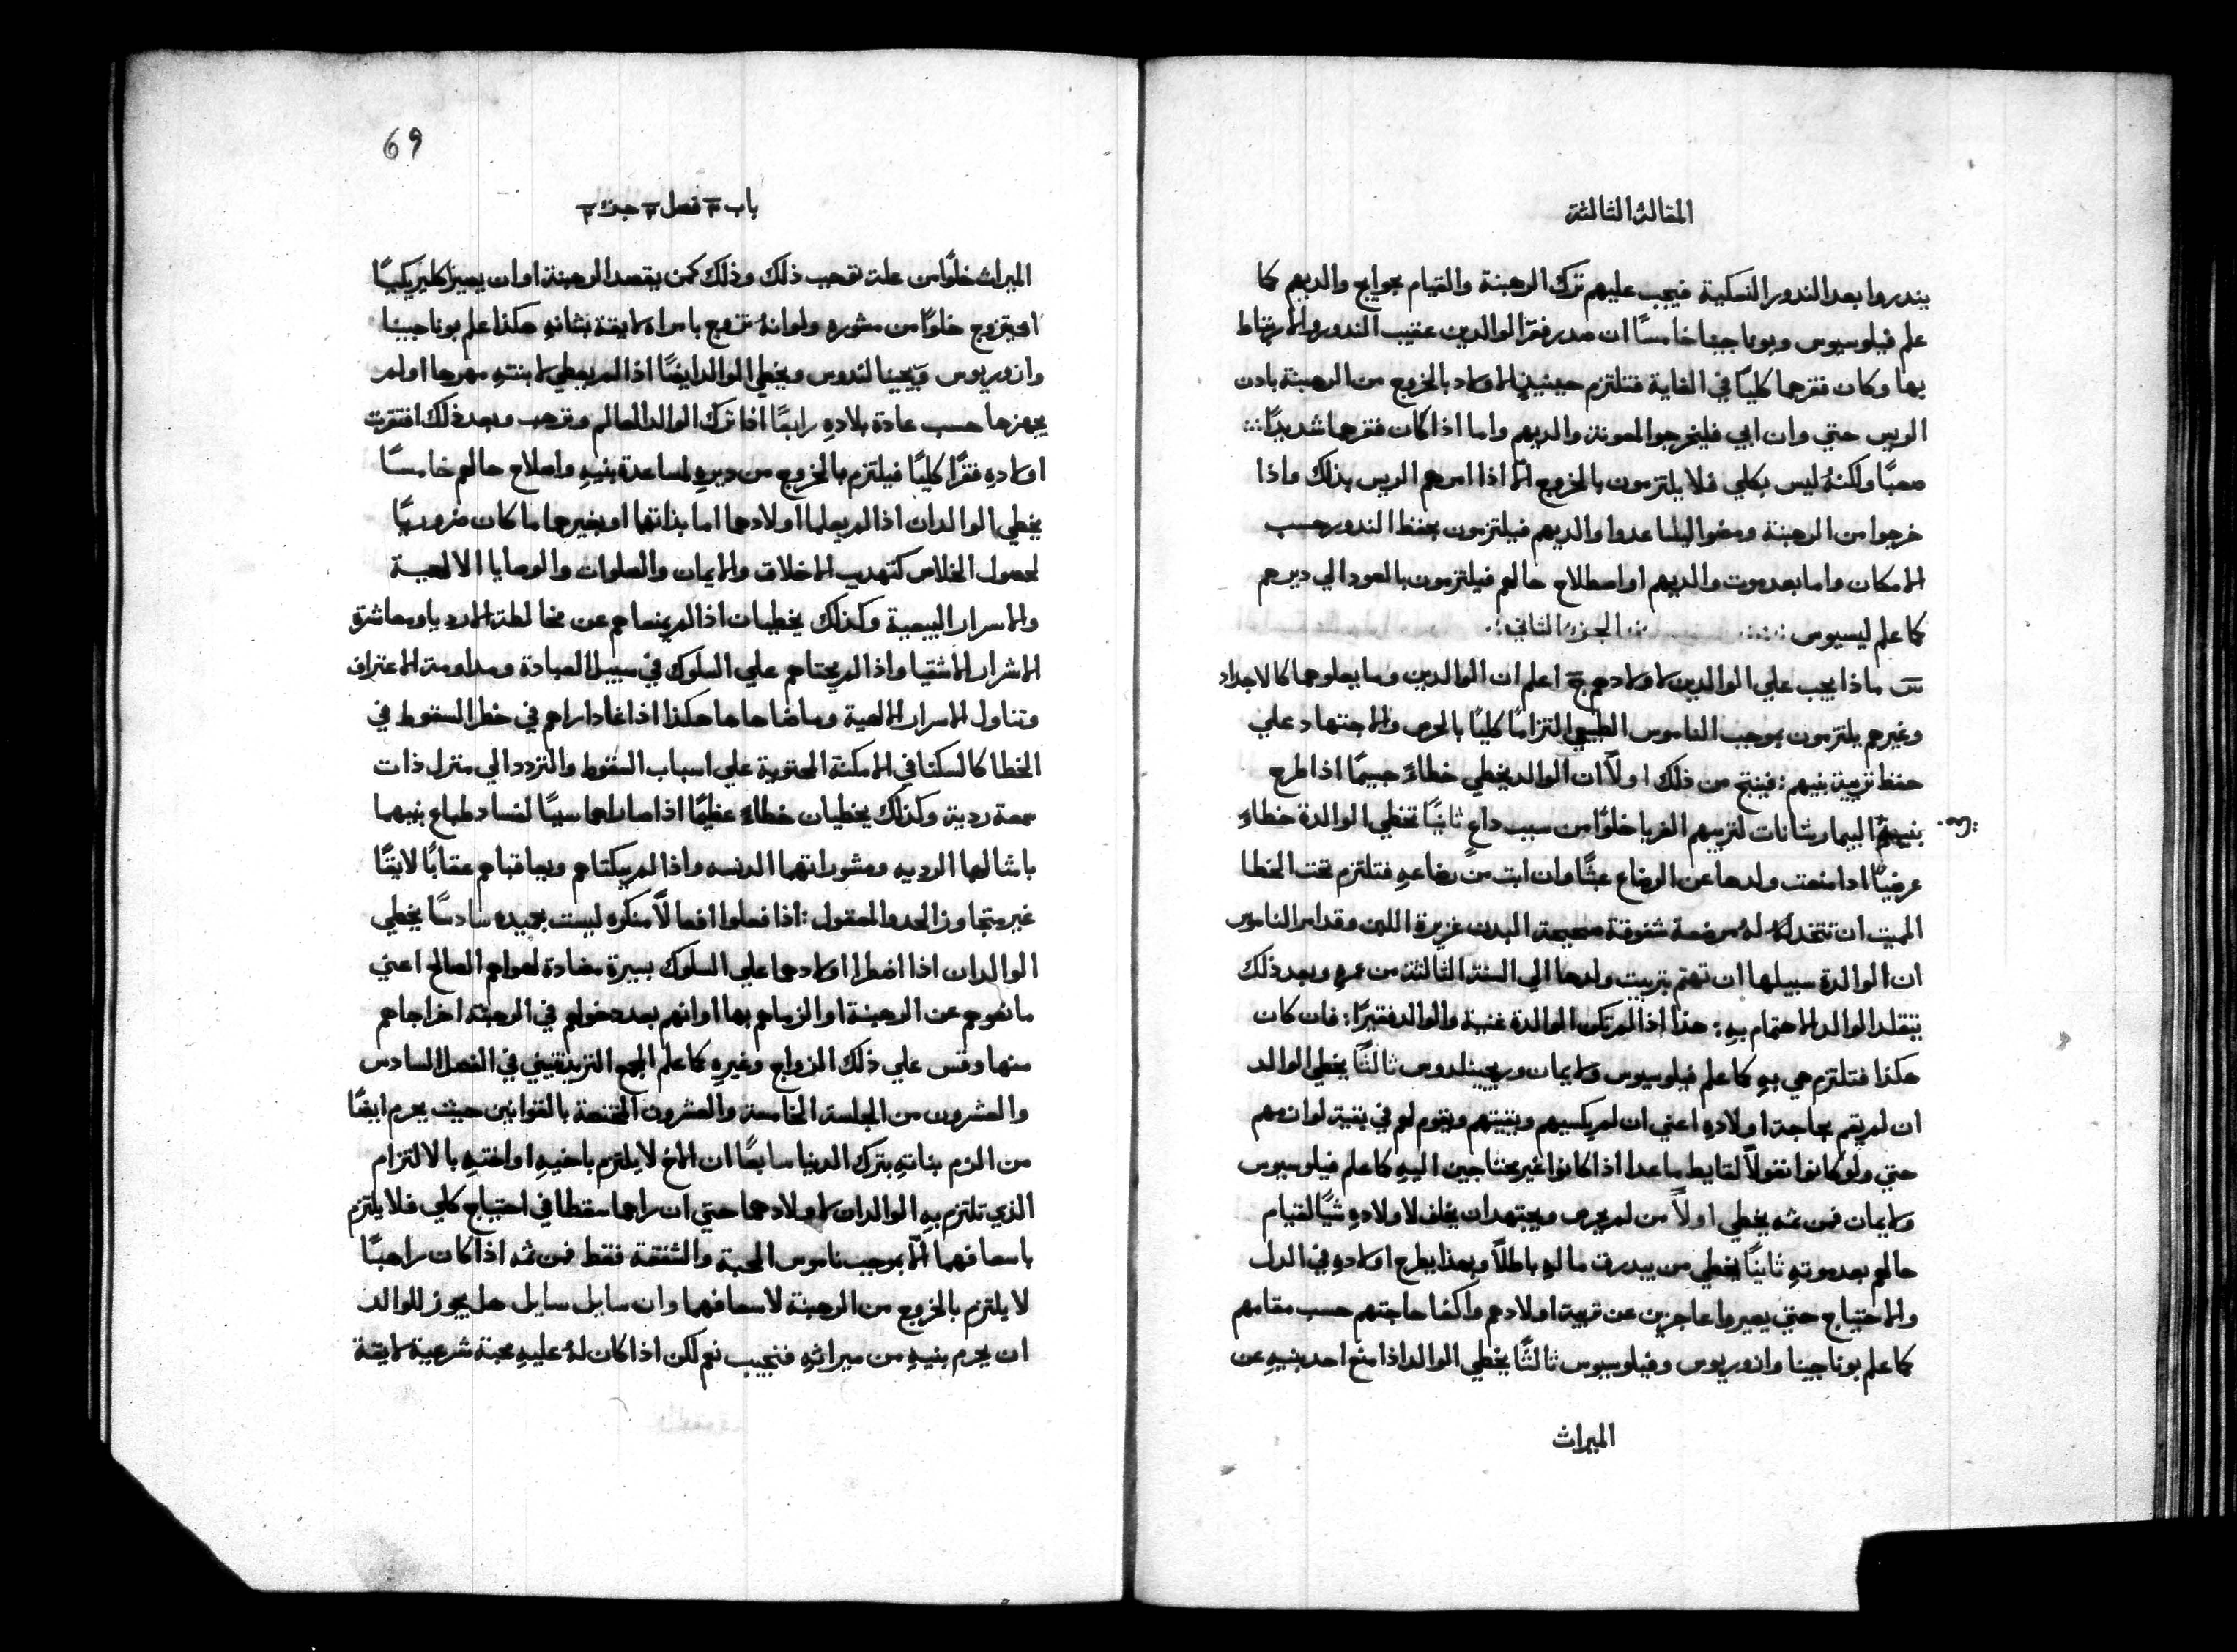 المقالة الثالثة
يندروا بعد الندور النسكية فيجب عليهم ترك الرهبنة والقيام بحوايج والديهم كما
علم فيلوسيوس وبوناجينا خامسًا ان صدر فقر الوالدين عقيب الندور والارتباط
بها وكان فقرهما كليًا في الغاية فتلتزم حينيذٍ الاولاد بالخروج من الرهبنة بادن
الريس حتي وان ابي فليخرجوا لمعونة والديهم واما اذا كان فقرهما شديدًا
صعبًا ولكنهُ ليس بكلي فلا يلتزمون بالخروج الّا اذا امرهم الريس بذلك واذا
خرجوا من الرهبنة ومضوا ليساعدوا والديهم فيلتزمون بحفظ الندور حسب
الامكان واما بعد موت والديهم او اصطلاح حالهم فيلتزمون بالعود الي ديرهم
كما علم ليسيوس :·:·: ·:· الجزء الثاني ·:·
س ماذا يجب علي الوالدين لاولادهم ج اعلم ان الوالدين وما يعلوهما كالاجداد
وغيرهم يلتزمون بموجب الناموس الطبيعي التزامًا كليًا بالحرص والاجتهاد علي
حفظ تربية بنيهم : فينتج من ذلك اولاً ان الوالد يخطي خطاءً جسيمًا اذا طرح
بنيهُ البيمارستانات لتربيهم الغربا خلوًا من سبب داعٍ ثانيًا تخطي الوالدة خطاءً
عرضيًا اذا منعت ولدها عن الرضاع عبثًا وان ابت من رضاعهِ فتلتزم تحت الخطا
المميت ان تتخد لهُ مرضعة شفوقة صحيحة البدن غزيرة اللبن وقد امر الناموس
ان الوالدة سبيلها ان تهتم بتربيت ولدها الي السنة الثالثة من عمرهِ وبعد ذلك
يتقلد الوالد الاهتمام بهِ : هذا اذا لم تكن الوالدة غنية والوالد فقيرًا : فان كان
هكذا فتلتزم هي بهِ كما علم فيلوسيوس ولايمان ويحيينلدوس ثالثًا يخطي الوالد
ان لم يقم بحاجة اولادهِ اعني ان لم يكسيهم ويقيتهم ويقوم لهم في بقية لوازمهم
حتي ولو كانوا نغولاً لقايط ما عدا اذا كانوا غير محتاجين اليهِ كما علم فيلوسيوس
ولايمان فمن ثمه يخطي اولاً من لم يحرص ويجتهد ان يخلف لاولادهِ شيًا لقيام
حالهم بعد موتهِ ثانيًا يخطي من يبدرق مالهِ باطلاً وبهذا يطرح اولادهِ في الدل
والاحتياج حتي يصيروا عاجزين عن تربية اولادهم واكفا حاجتهم حسب مقامهم
كما علم بوناجينا وازوريوس وفيلوسيوس ثالثًا يخطي الوالد اذا منع احد بنيهِ عن
الميراث
69
باب ٣ فصل ٣ جزء ٢
الميراث خلوًا من علة توجب ذلك وذلك كمن يقصد الرهبنة او ان يصير اكليريكيًا
او يتزوج خلوًا من مشوره ولو انهُ تزوج بامراه لايقة بشانهِ هكذا علم بوناجينا
وازوريوس ويحيينالندوس ويخطي الوالد ايضًا اذا لم يعطي لابنتهِ مهرها او لم
يجهزها حسب عادة بلادهِ رابعًا اذا ترك الوالد العالم وترهب وبعد ذلك افتقرت
اولادهِ فقرًا كليًا فيلتزم بالخروج من ديرهِ لمساعدة بنيهِ واصلاح حالهم خامسًا
يخطي الوالدان اذا لم يعلما اولادهما اما بذاتهما او بغيرهما ما كان ضروريًا
لحصول الخلاص كتهديب الاخلاق والايمان والصلوات والوصايا الالهية
والاسرار البيعية وكذلك يخطيان اذا لم ينصاهم عن مخالطة الارديا ومعاشرة
الاشرار الاشقيا واذا لم يحتاهم علي السلوك في سبيل العبادة ومداومة الاعتراف
وتناول الاسرار الالهية وما ضاهاها هكذا اذا غادراهم في خطر السقوط في
الخطا كالسكنا في الامكنة المحتوية علي اسباب السقوط والتردد الي منزل ذات
سمعة ردية وكذلك يخطيان خطاءً عظيمًا اذا صارا هما سببًا لفساد طباع بنيهما
بامثالهما الرديه ومشوراتهما الدنسه واذا لم يبكتاهم ويعاقباهم عقابًا لايقًا
غير متجاوز الحد والمعقول : اذا فعلوا افعالاً منكره ليست بجيده سادسًا يخطي
الوالدان اذا اضطرا اولادهما علي السلوك بسيرة مضادة لهواهم الصالح اعني
مانعوهم عن الرهبنة او الزماهم بها او انهم بعد دخولهم في الرهبنة اخراجاهم
منها وقس علي ذلك الزواج وغيرهِ كما علم المجمع التريدنتيني في الفصل السادس
والعشرون من الجلسة الخامسة والعشرون المختصة بالقوانين حيث يحرم ايضًا
من الزم بناتهِ بترك الدنيا سابعًا ان الاخ لا يلتزم باخيهِ او اختهِ بالالتزام
الذي تلتزم بهِ الوالدان لاولادهما حتي ان راهما سقطا في احتياج كلي فلا يلتزم
باسعافهما الّا بموجب ناموس المحبة والشفقة فقط فمن ثمه اذا كان راهبًا
لا يلتزم بالخروج من الرهبنة لاسعافهما وان سايل سايل هل يجوز للوالد
ان يحرم بنيهِ من ميراثهِ فنجيب نعم لكن اذا كان لهُ عليهِ محبة شرعية لايقة